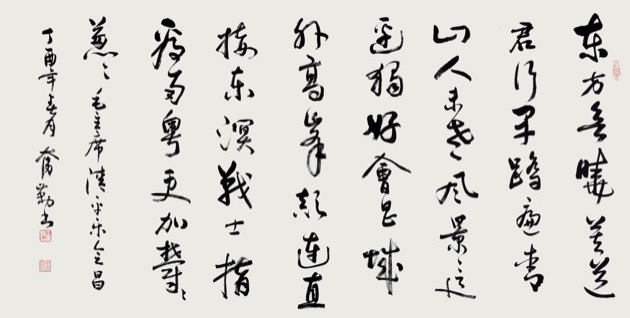 东方欲晓莫道
君行早踏遍青
山人未老风景这
边独好會昌城
外高峰颠连直
接东溟战士指
看南粤更加郁々
葱々 毛主席清平乐会昌
丁酉年春月